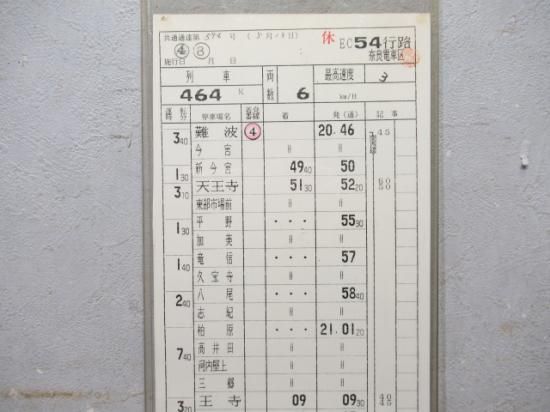 共通通達第 574 号 (3月18日)
休 EC54行路
④ ③
施行日 月 日
奈良電車区
列車 両数 最高速度
464 K 6 km/H
運転時分 停車場名 着発番線 着 発(通) 記事
3 40 難波 ④ 20.46 45
今宮 〃 〃
1 30 新今宮 49 40 50
3 10 天王寺 51 30 52 20
東部市場前 〃 〃
平野 ・・・ 55 30
加美 〃 〃
1 40 竜信 ・・・ 57
久宝寺 〃 〃
2 40 八尾 ・・・ 58 40
志紀 〃 〃
柏原 ・・・ 21.01 20
7 40 高井田 〃 〃
河内堅上 〃 〃
三郷 〃 〃
3 20 王寺 09 09 30